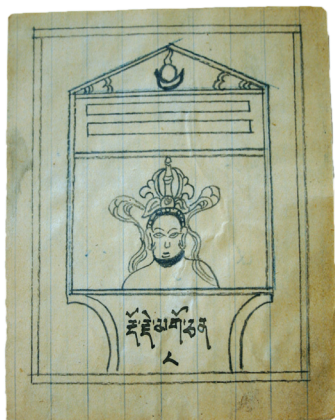 རྡོ་རྗེ་མགོ་ཅན